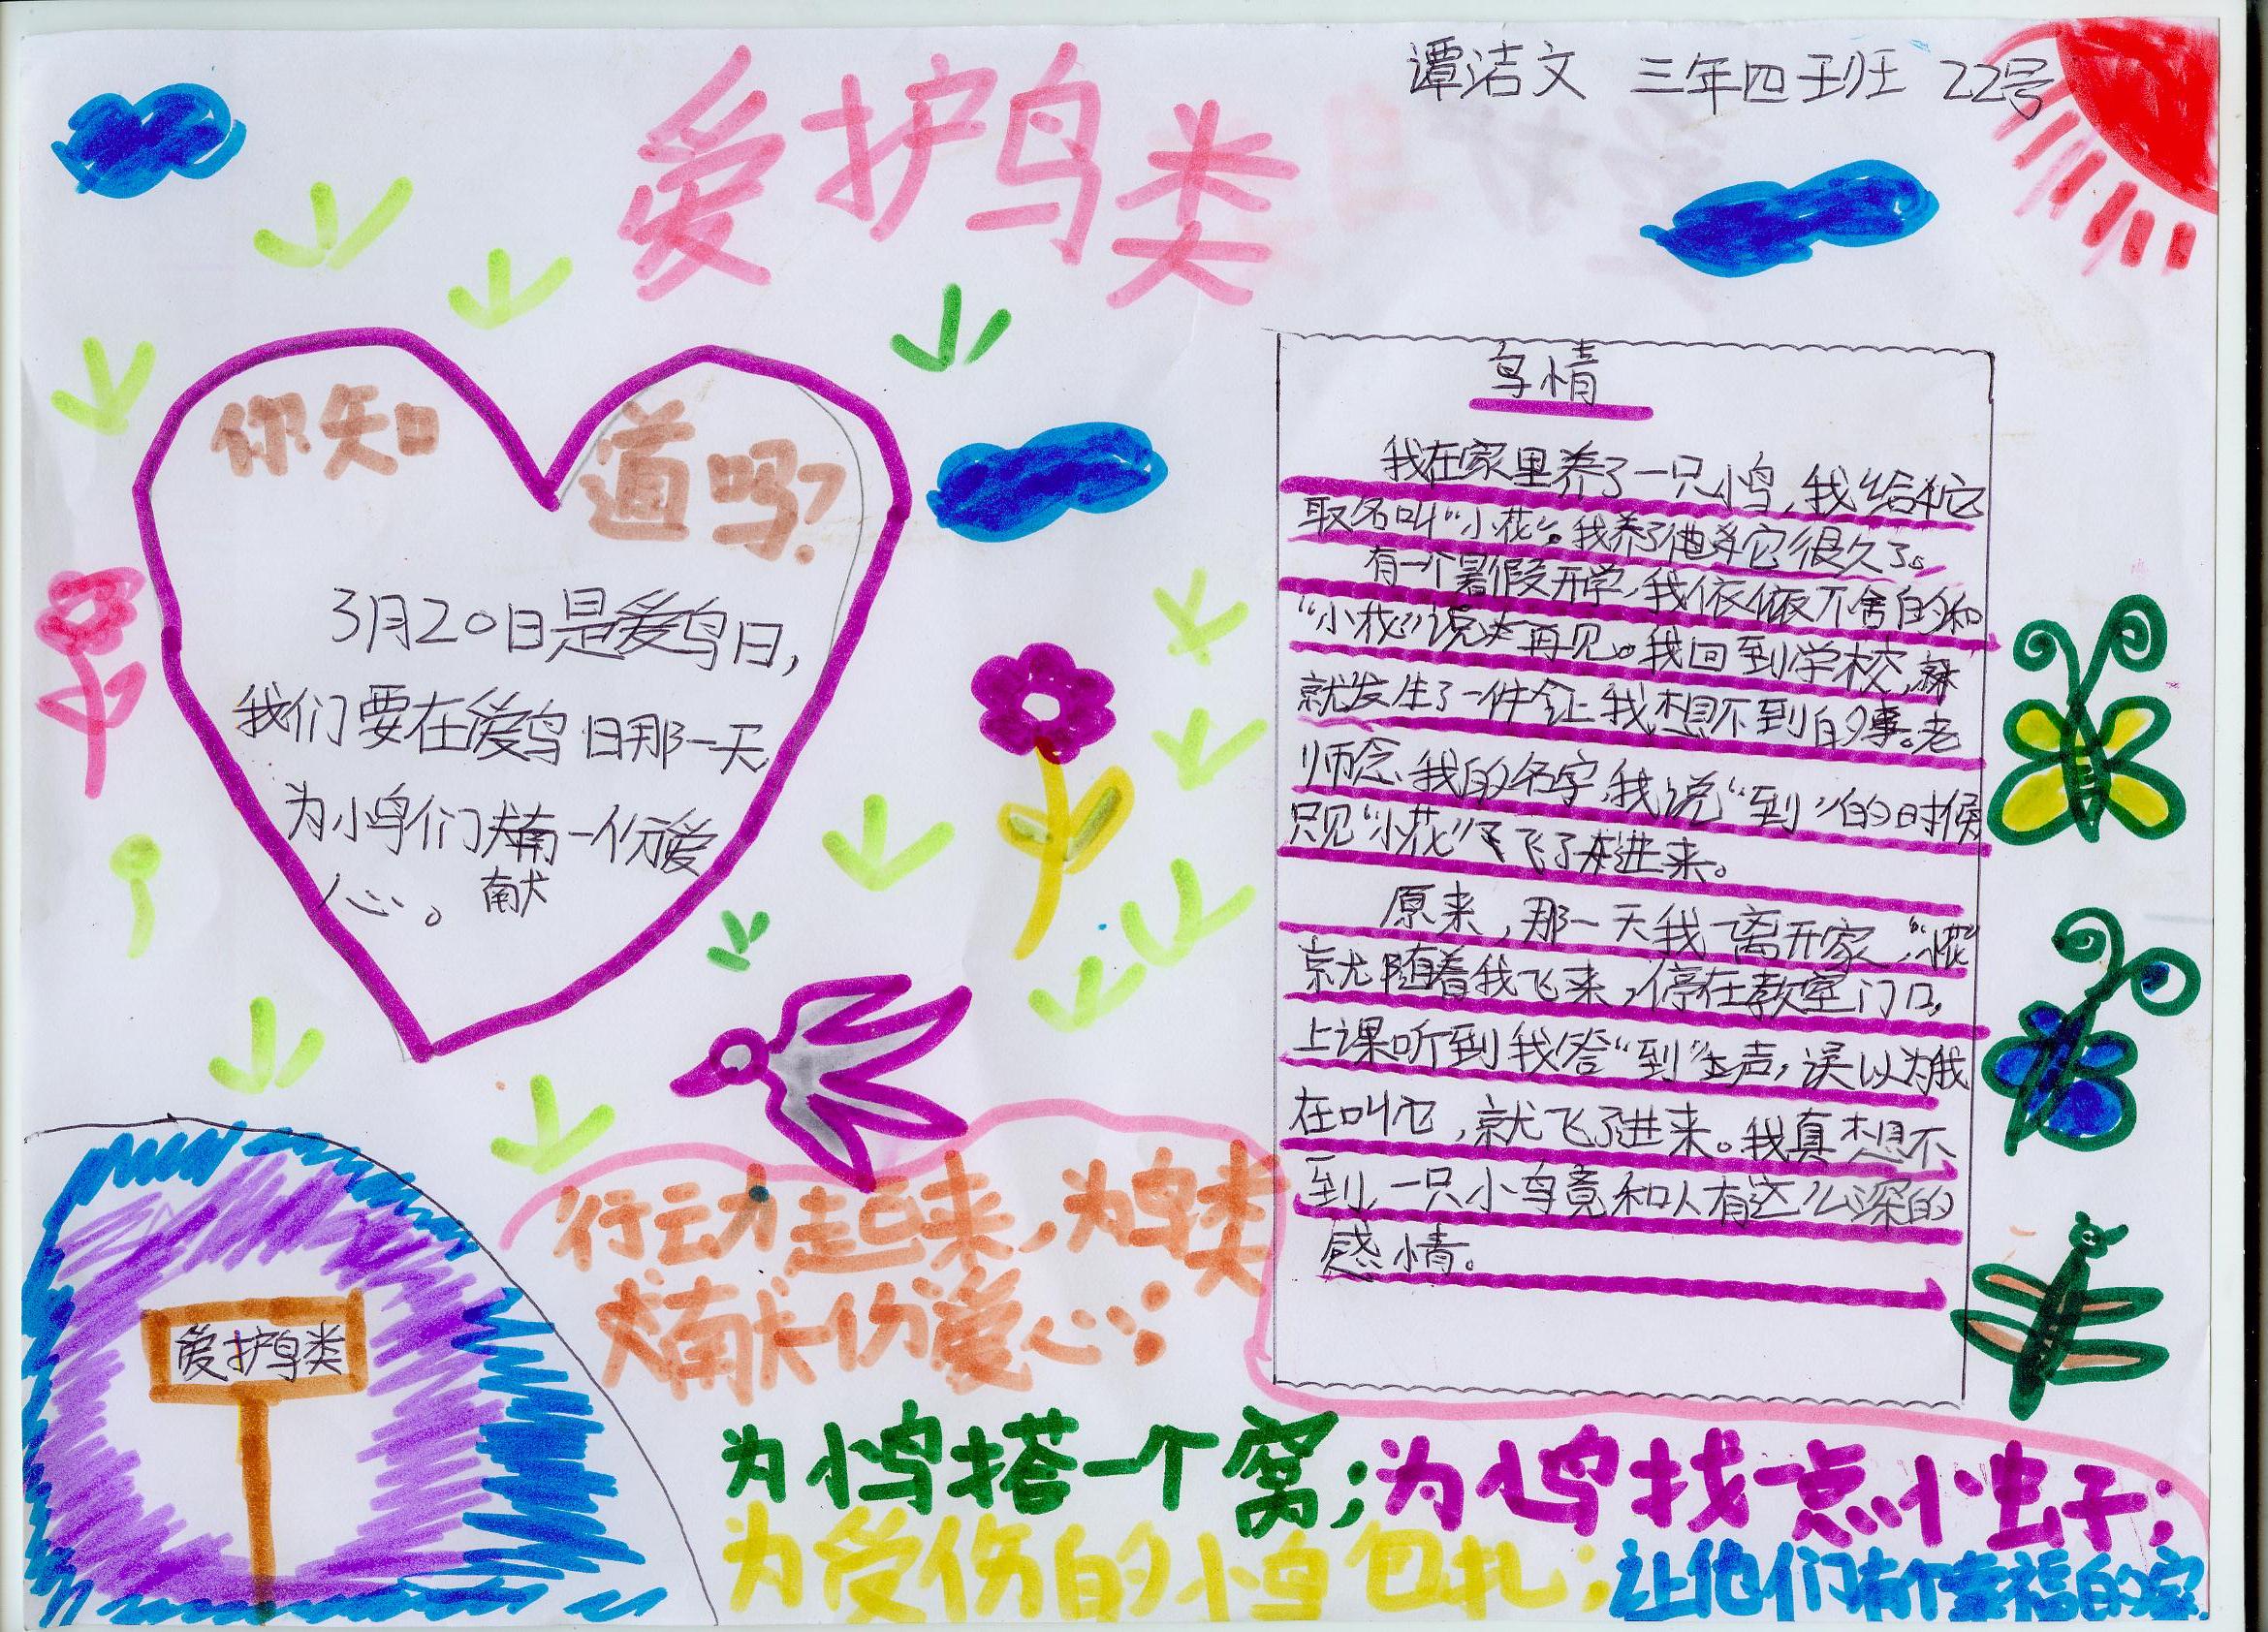 谭洁文 三年四班 22号
爱护鸟类
你知道吗?
3月20日是爱鸟日,
我们要在爱鸟日那一天
为小鸟们献一份爱
心。献
鸟情
我在家里养了一只小鸟,我给它
取名叫“小花”。我养了它很久了。
有一个暑假开学,我依依不舍的和
“小花”说再见。我回到学校,
就发生了一件令让我想不到的事。老
师念我的名字,我说“到”的时候
只见“小花”飞了进来。
原来,那一天我离开家,“小花”
就随着我飞来,停在教室门口,
上课听到我答“到”声,误以为我
在叫它,就飞了进来。我真想不
到,一只小鸟竟和人有这么深的
感情。
行动起来,为鸟类
献份爱心:
爱护鸟类
为小鸟搭一个窝;为小鸟找点小虫子;
为受伤的小鸟包扎;让他们有个幸福的家